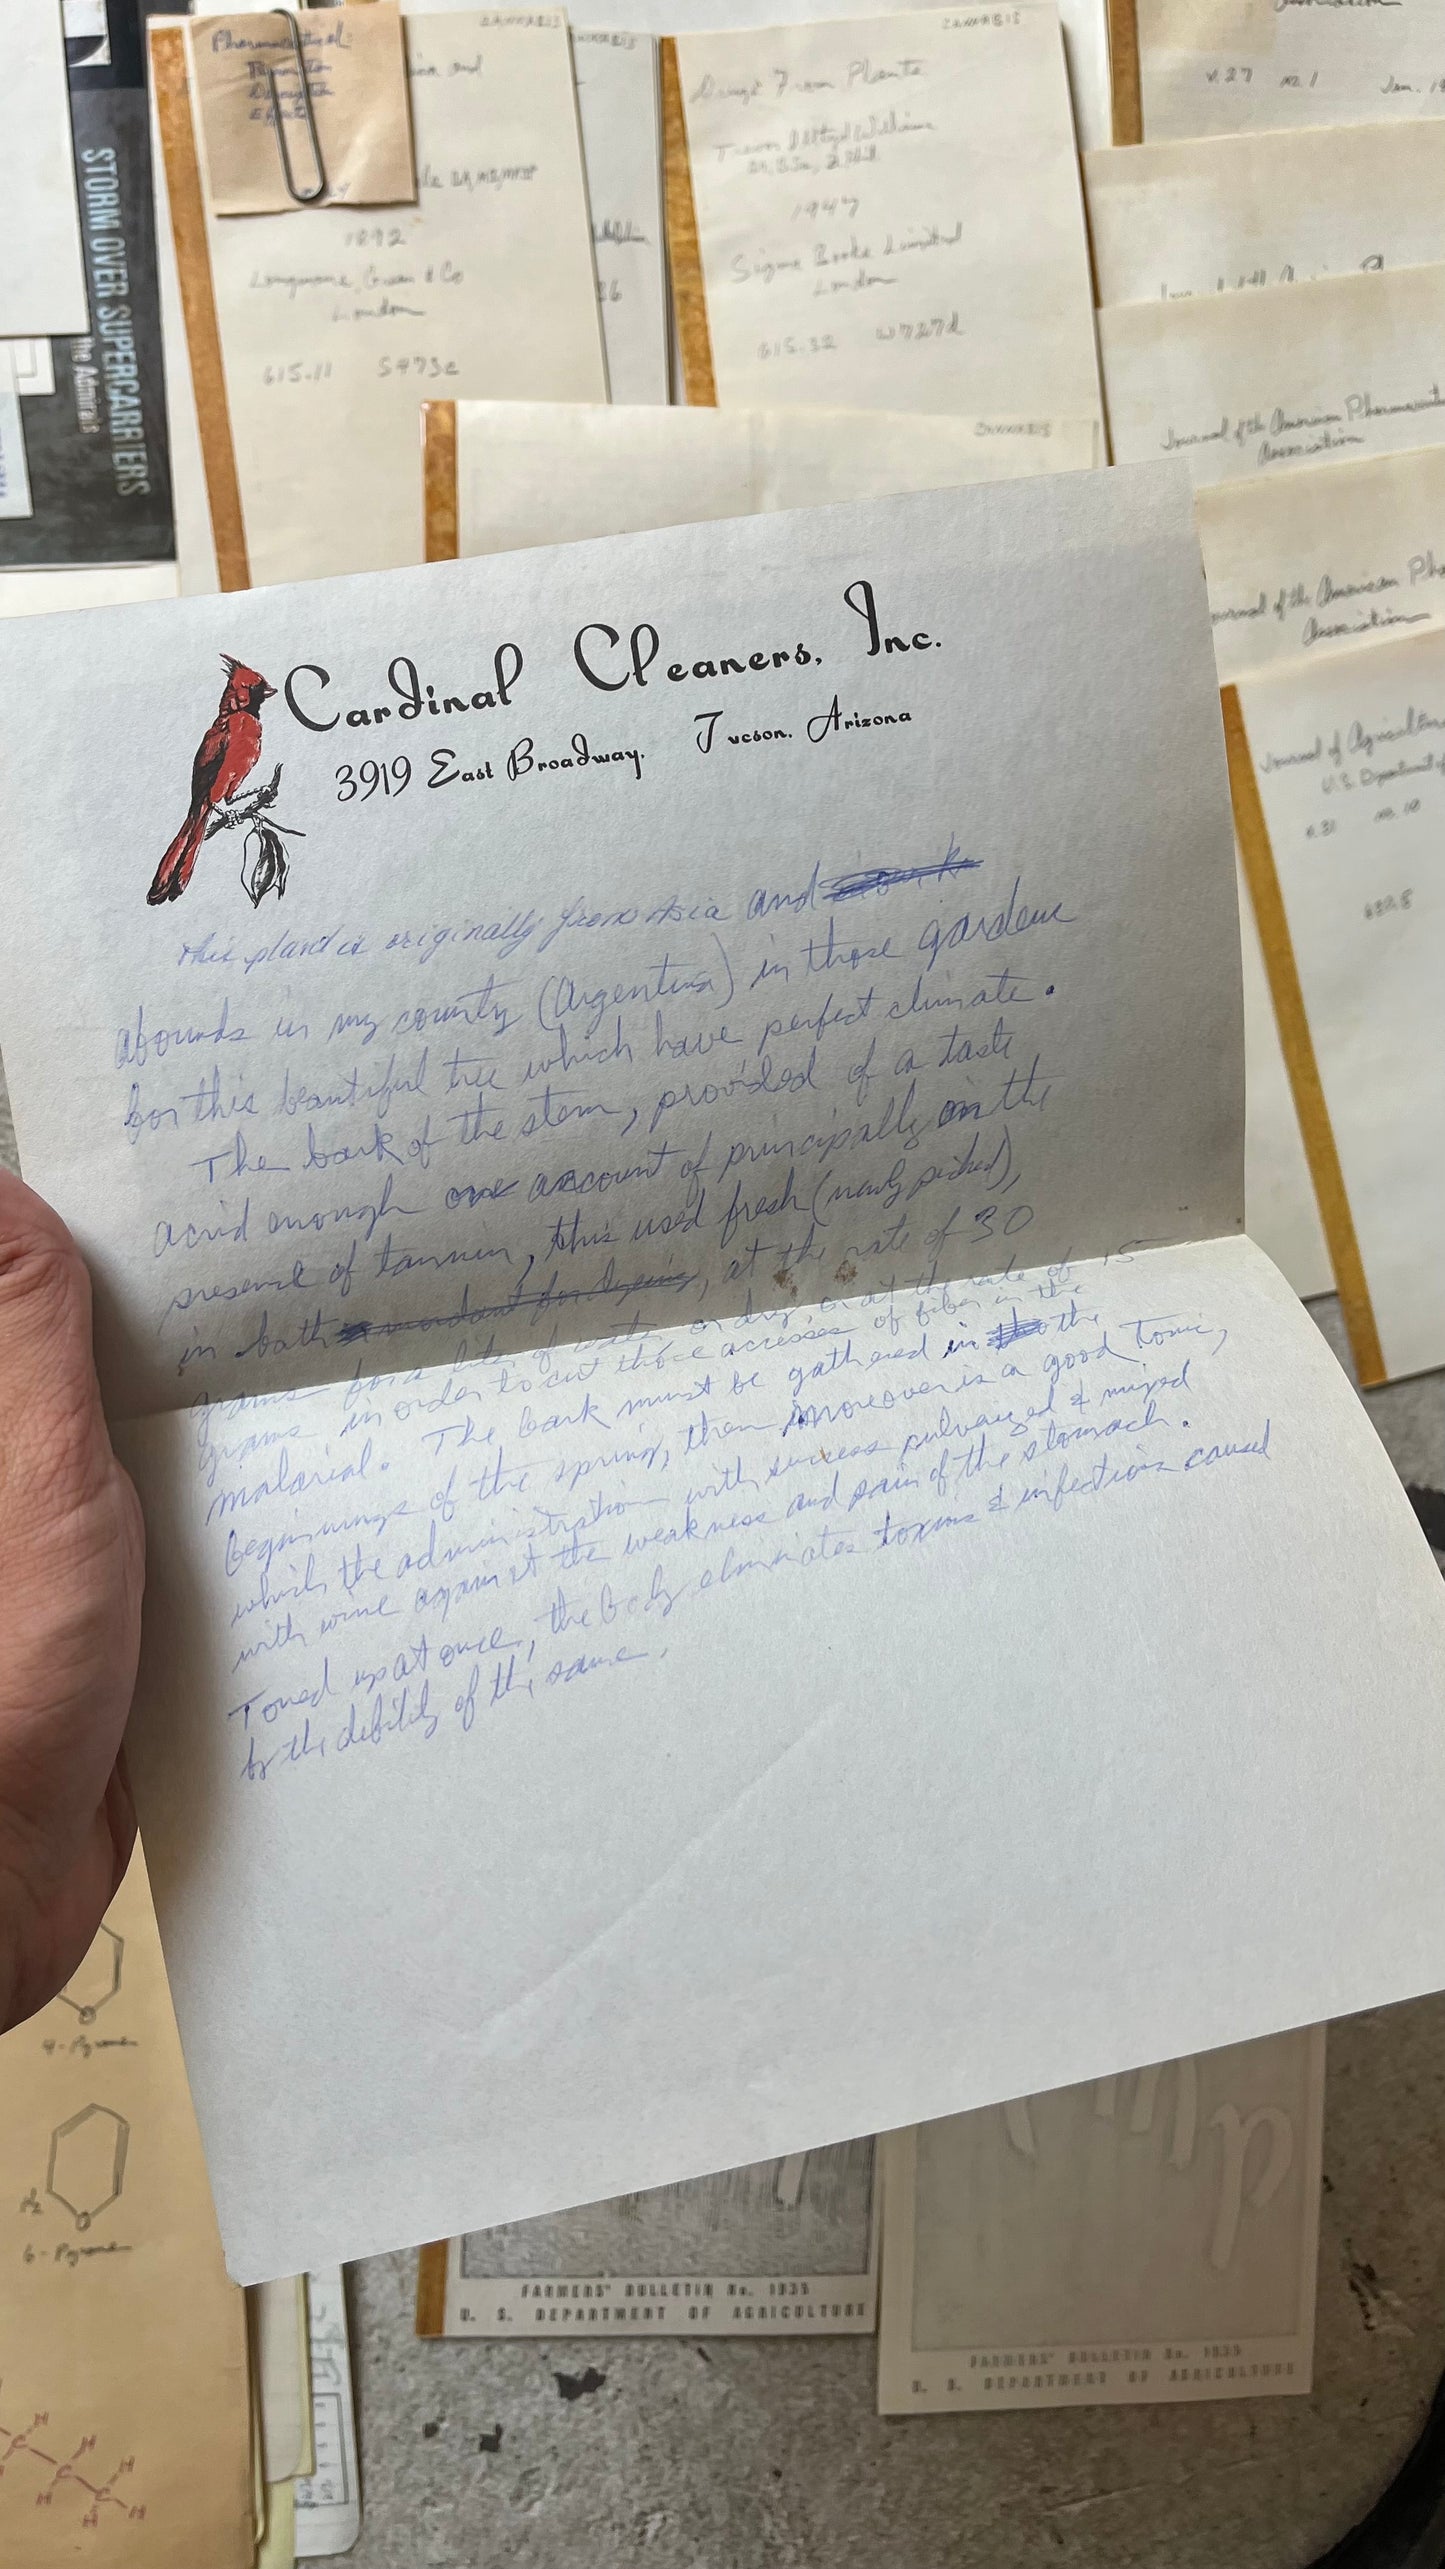 CANNABIS
Pharmaceutical:
and
1892
Longmans, Green & Co
London
615.11 S473c
STORM OVER SUPERCARRIERS
the Admirals
CANNABIS
Drugs From Plants
Trevor Illtyd Williams
1947
Sigma Books Limited
London
615.32 W727d
CANNABIS
Association
v.27 no.1 Jan. 19
Journal of the American Pharmaceut
Association
Journal of the American Pha
Association
Journal of Agricultur
U.S. Department of
v.31 no.10
Cardinal Cleaners, Inc.
3919 East Broadway, Tucson, Arizona
This plant is originally from Asia and
abounds in my county (Argentina) in those gardens
for this beautiful tree which have perfect climate.
The bark of the stem, provided of a taste
acrid enough on account of principally in the
presence of tannin, this used fresh (newly picked),
in bath, at the rate of 30
grams for a liter of water or dry or at the rate of 15
grams in order to cut those accesses of fiber in the
malarial. The bark must be gathered in the
beginnings of the spring, then moreover is a good tonic,
which the administration with success pulverized & mixed
with wine against the weakness and pain of the stomach.
Toned up at once, the body eliminates toxins & infections caused
by the debility of the same.
4-Pyrone
6-Pyrone
FARMERS' BULLETIN No. 1935
U. S. DEPARTMENT OF AGRICULTURE
FARMERS' BULLETIN No. 1935
U. S. DEPARTMENT OF AGRICULTURE
H
C
H
C
H
H
C
H
H